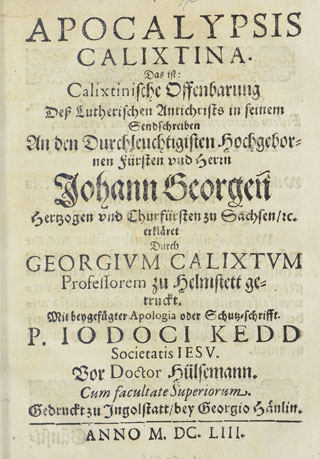 APOCALYPSIS
CALIXTINA.
Das ist:
Calixtinische Offenbarung
Deß Lutherischen Antichrists in seinem
Sendschreiben
An den Durchleuchtigisten Hochgebor-
nen Fürsten vnd Herrn
Johann Georgen
Hertzogen vnd Churfürsten zu Sachsen/ ꝛc.
erkläret
Durch
GEORGIVM CALIXTVM
Professorem zu Helmstett ge-
truckt.
Mit beygefügter Apologia oder Schutzschrifft.
P. IODOCI KEDD
Societatis IESV.
Vor Doctor Hülsemann.
Cum facultate Superiorum.
Gedruckt zu Ingolstatt/ bey Georgio Hänlin.
ANNO M. DC. LIII.